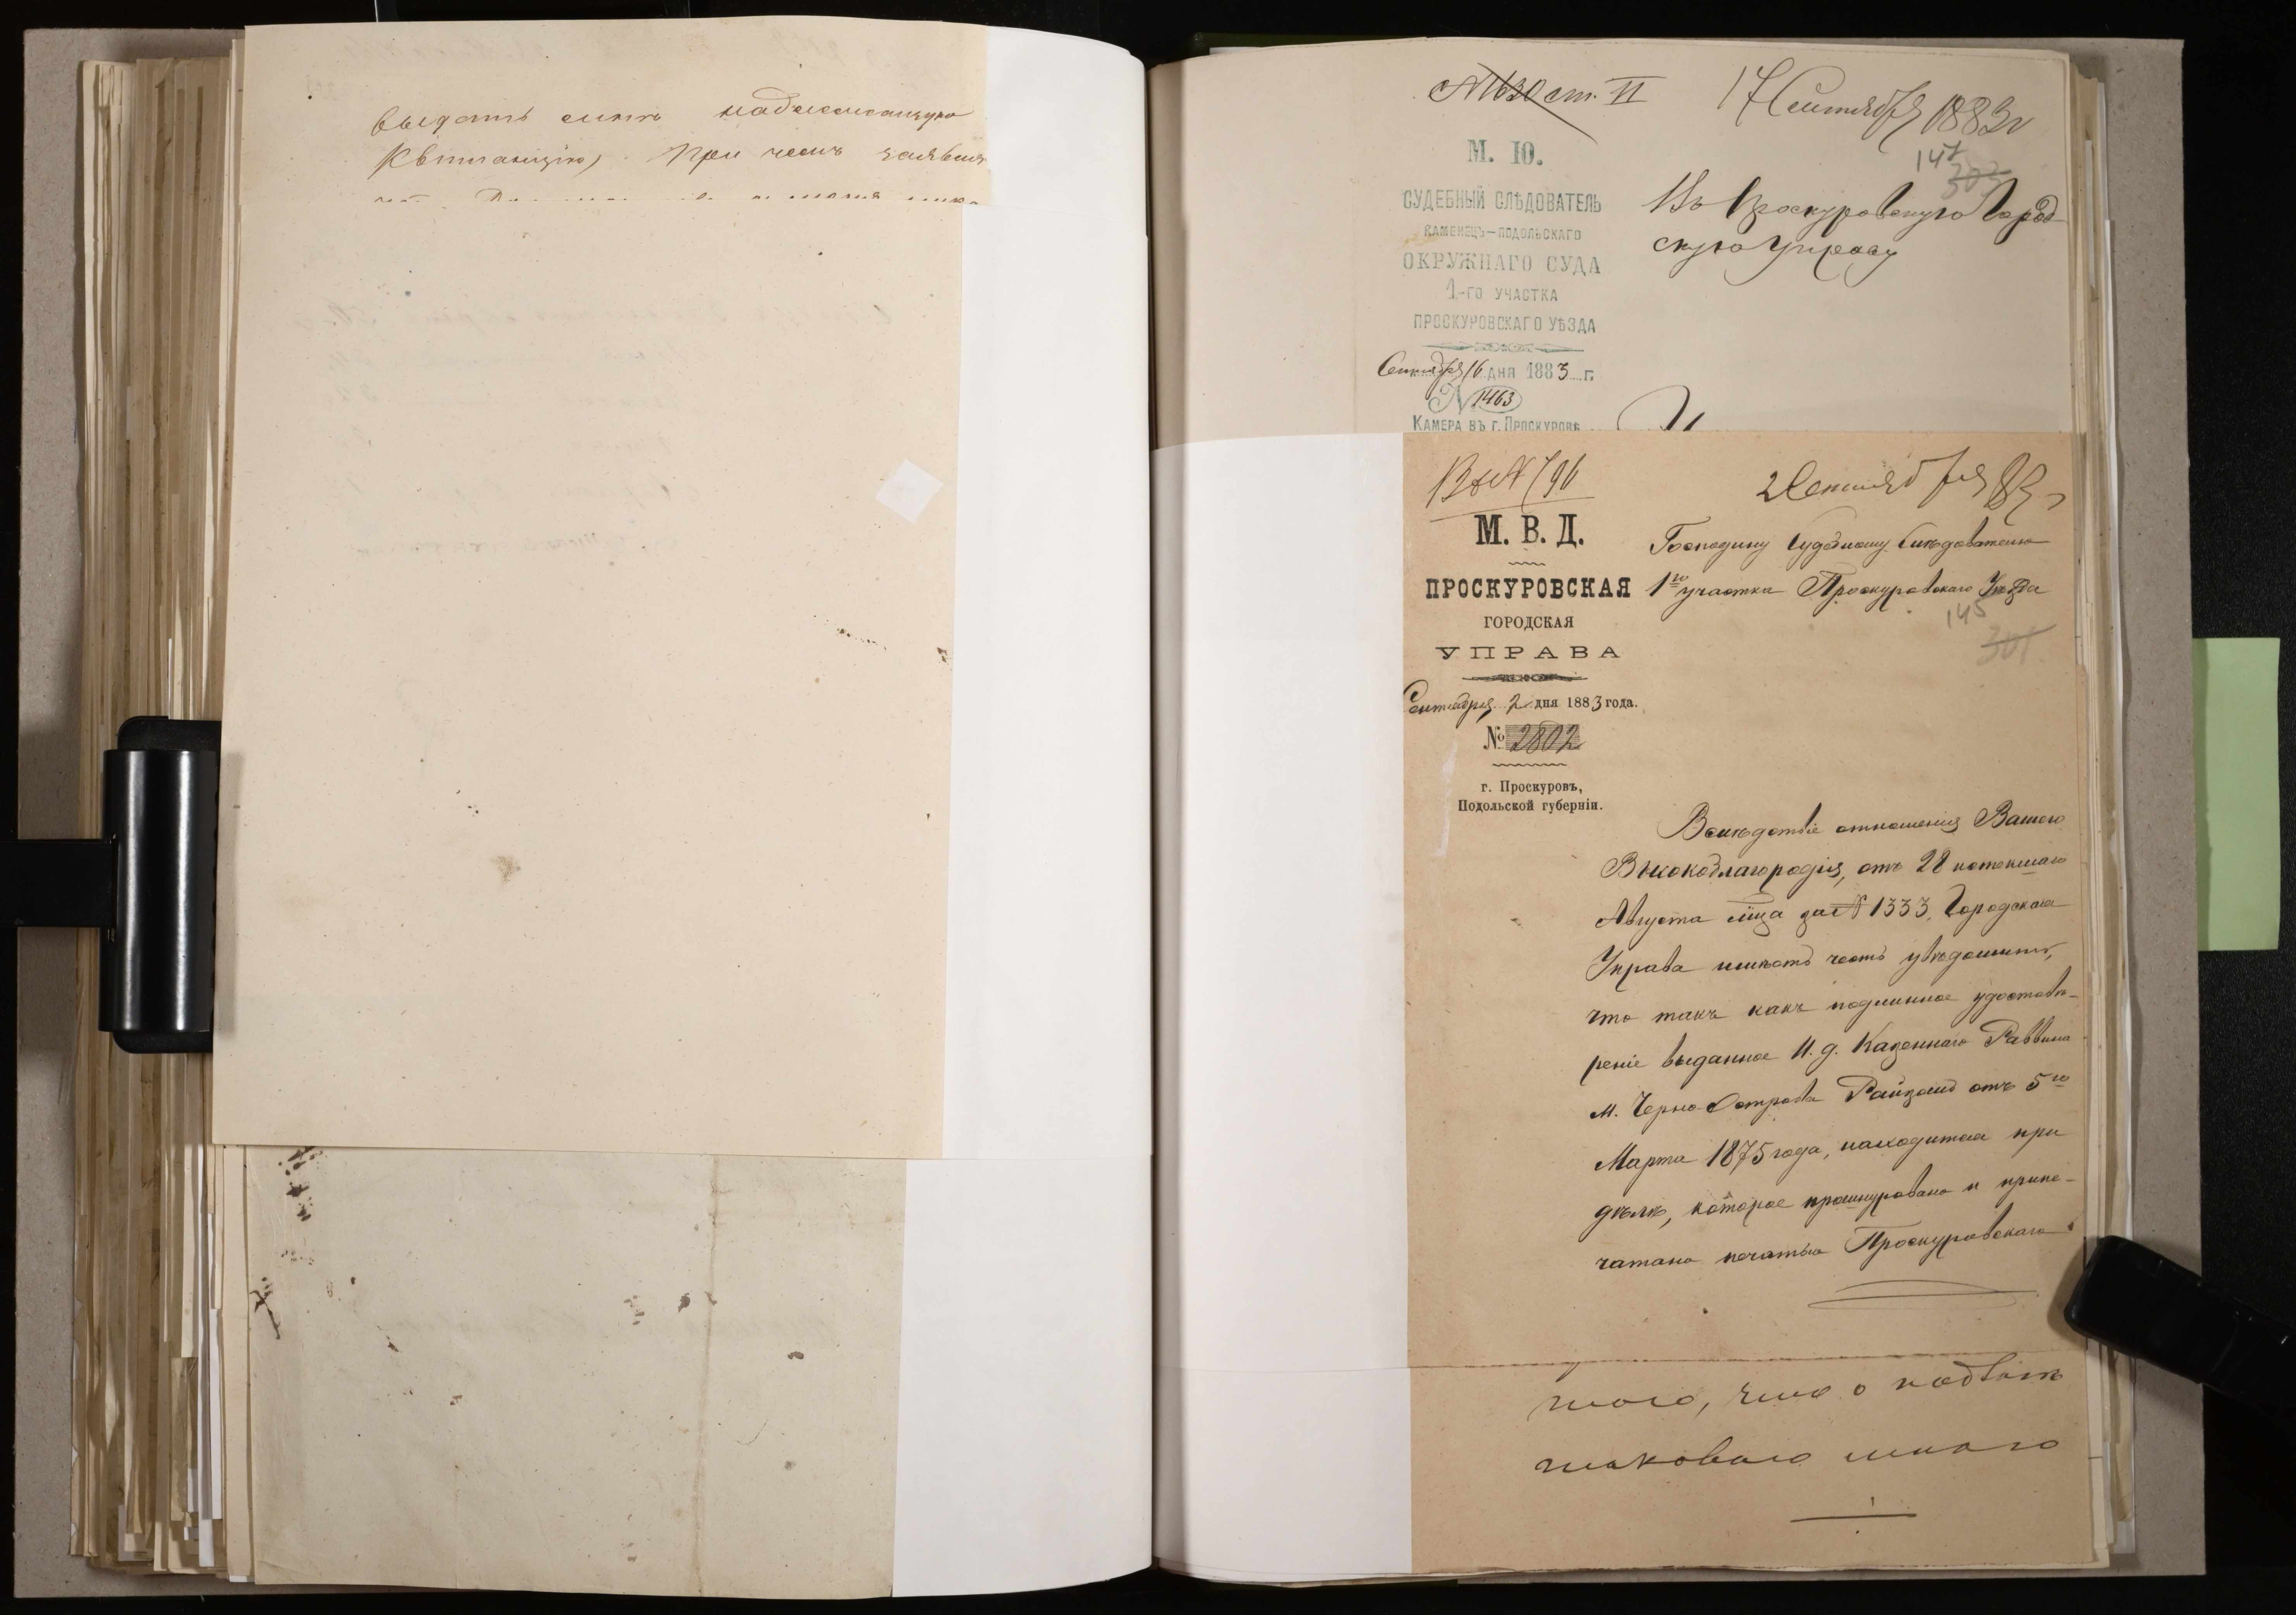 выдать мнѣ надлежащую
Квитанцію, При чемъ заявля
№ 1630 ст. II
17 Сентября 1883 г
147
303
М. Ю.
СУДЕБНЫЙ СЛѢДОВАТЕЛЬ
КАМЕНЕЦЪ-ПОДОЛЬСКАГО
ОКРУЖНАГО СУДА
1-ГО УЧАСТКА
ПРОСКУРОВСКАГО УѢЗДА
Сентября 16 ДНЯ 1883 г.
№ 1463
КАМЕРА ВЪ Г. ПРОСКУРОВѢ
Въ Проскуровскую Город
скую Управу
2 Сентября 83 г
М. В. Д.
ПРОСКУРОВСКАЯ
ГОРОДСКАЯ
УПРАВА
Сентября 2 дня 1883 года.
№ 2802
г. Проскуровъ,
Подольской губерніи.
Господину Судебному Слѣдователю
1го участка Проскуровскаго Уѣзда
145
301
Вслѣдствіе отношенія Вашего
Высокоблагородія, отъ 28 истекшаго
Августа м̃ца за № 1333, Городская
Управа имѣетъ честь увѣдомить,
что такъ какъ подлинное удостовѣ-
реніе выданное И. д. Казеннаго Раввина
м. Черно-Острова Райзомъ отъ 5го
Марта 1875 года, находится при
дѣлѣ, которое прошнуровано и припе-
чатано печатью Проскуровскаго
того, что о
таковаго